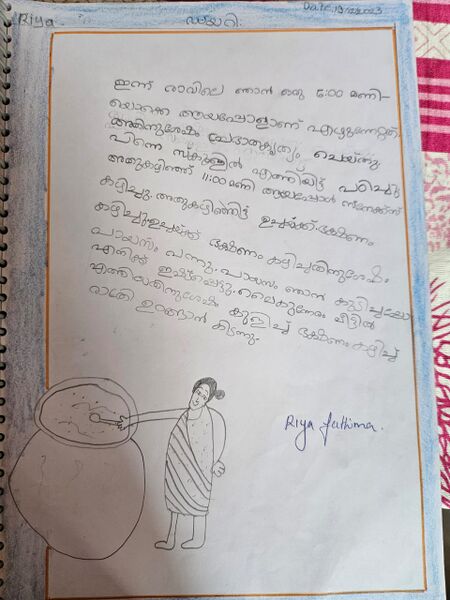 Riya
ഡയറി
Date:19/12/2023
ഇന്ന് രാവിലെ ഞാൻ ഒരു 6:00 മണി-
യൊക്കെ ആയപ്പോളാണ് എഴുന്നേറ്റത്.
അതിനുശേഷം പ്രഭാതകൃത്യം ചെയ്തു.
പിന്നെ സ്കൂളിൽ എത്തിയിട്ട് പഠിച്ചു
അതുകഴിഞ്ഞ് 11:00മണി ആയപ്പോൾ സ്നേക്ക്സ്
കഴിച്ചു. അതുകഴിഞ്ഞിട്ട് ഉച്ചയ്ക്ക് ഭക്ഷണം
കഴിച്ചു.ഉച്ചയ്ക്ക് ഭക്ഷണം കഴിച്ചതിനുശേഷം
പായസം വന്നു. പായസം ഞാൻ കുടിച്ചപ്പോ
എനിക്ക് ഇഷ്ടപ്പെട്ടു. വൈകുന്നേരം വീട്ടിൽ
എത്തിയതിനുശേഷം കുളിച്ച് ഭക്ഷണം കഴിച്ച്
രാത്രി ഉറങ്ങാൻ കിടന്നു.
Riya fathima.